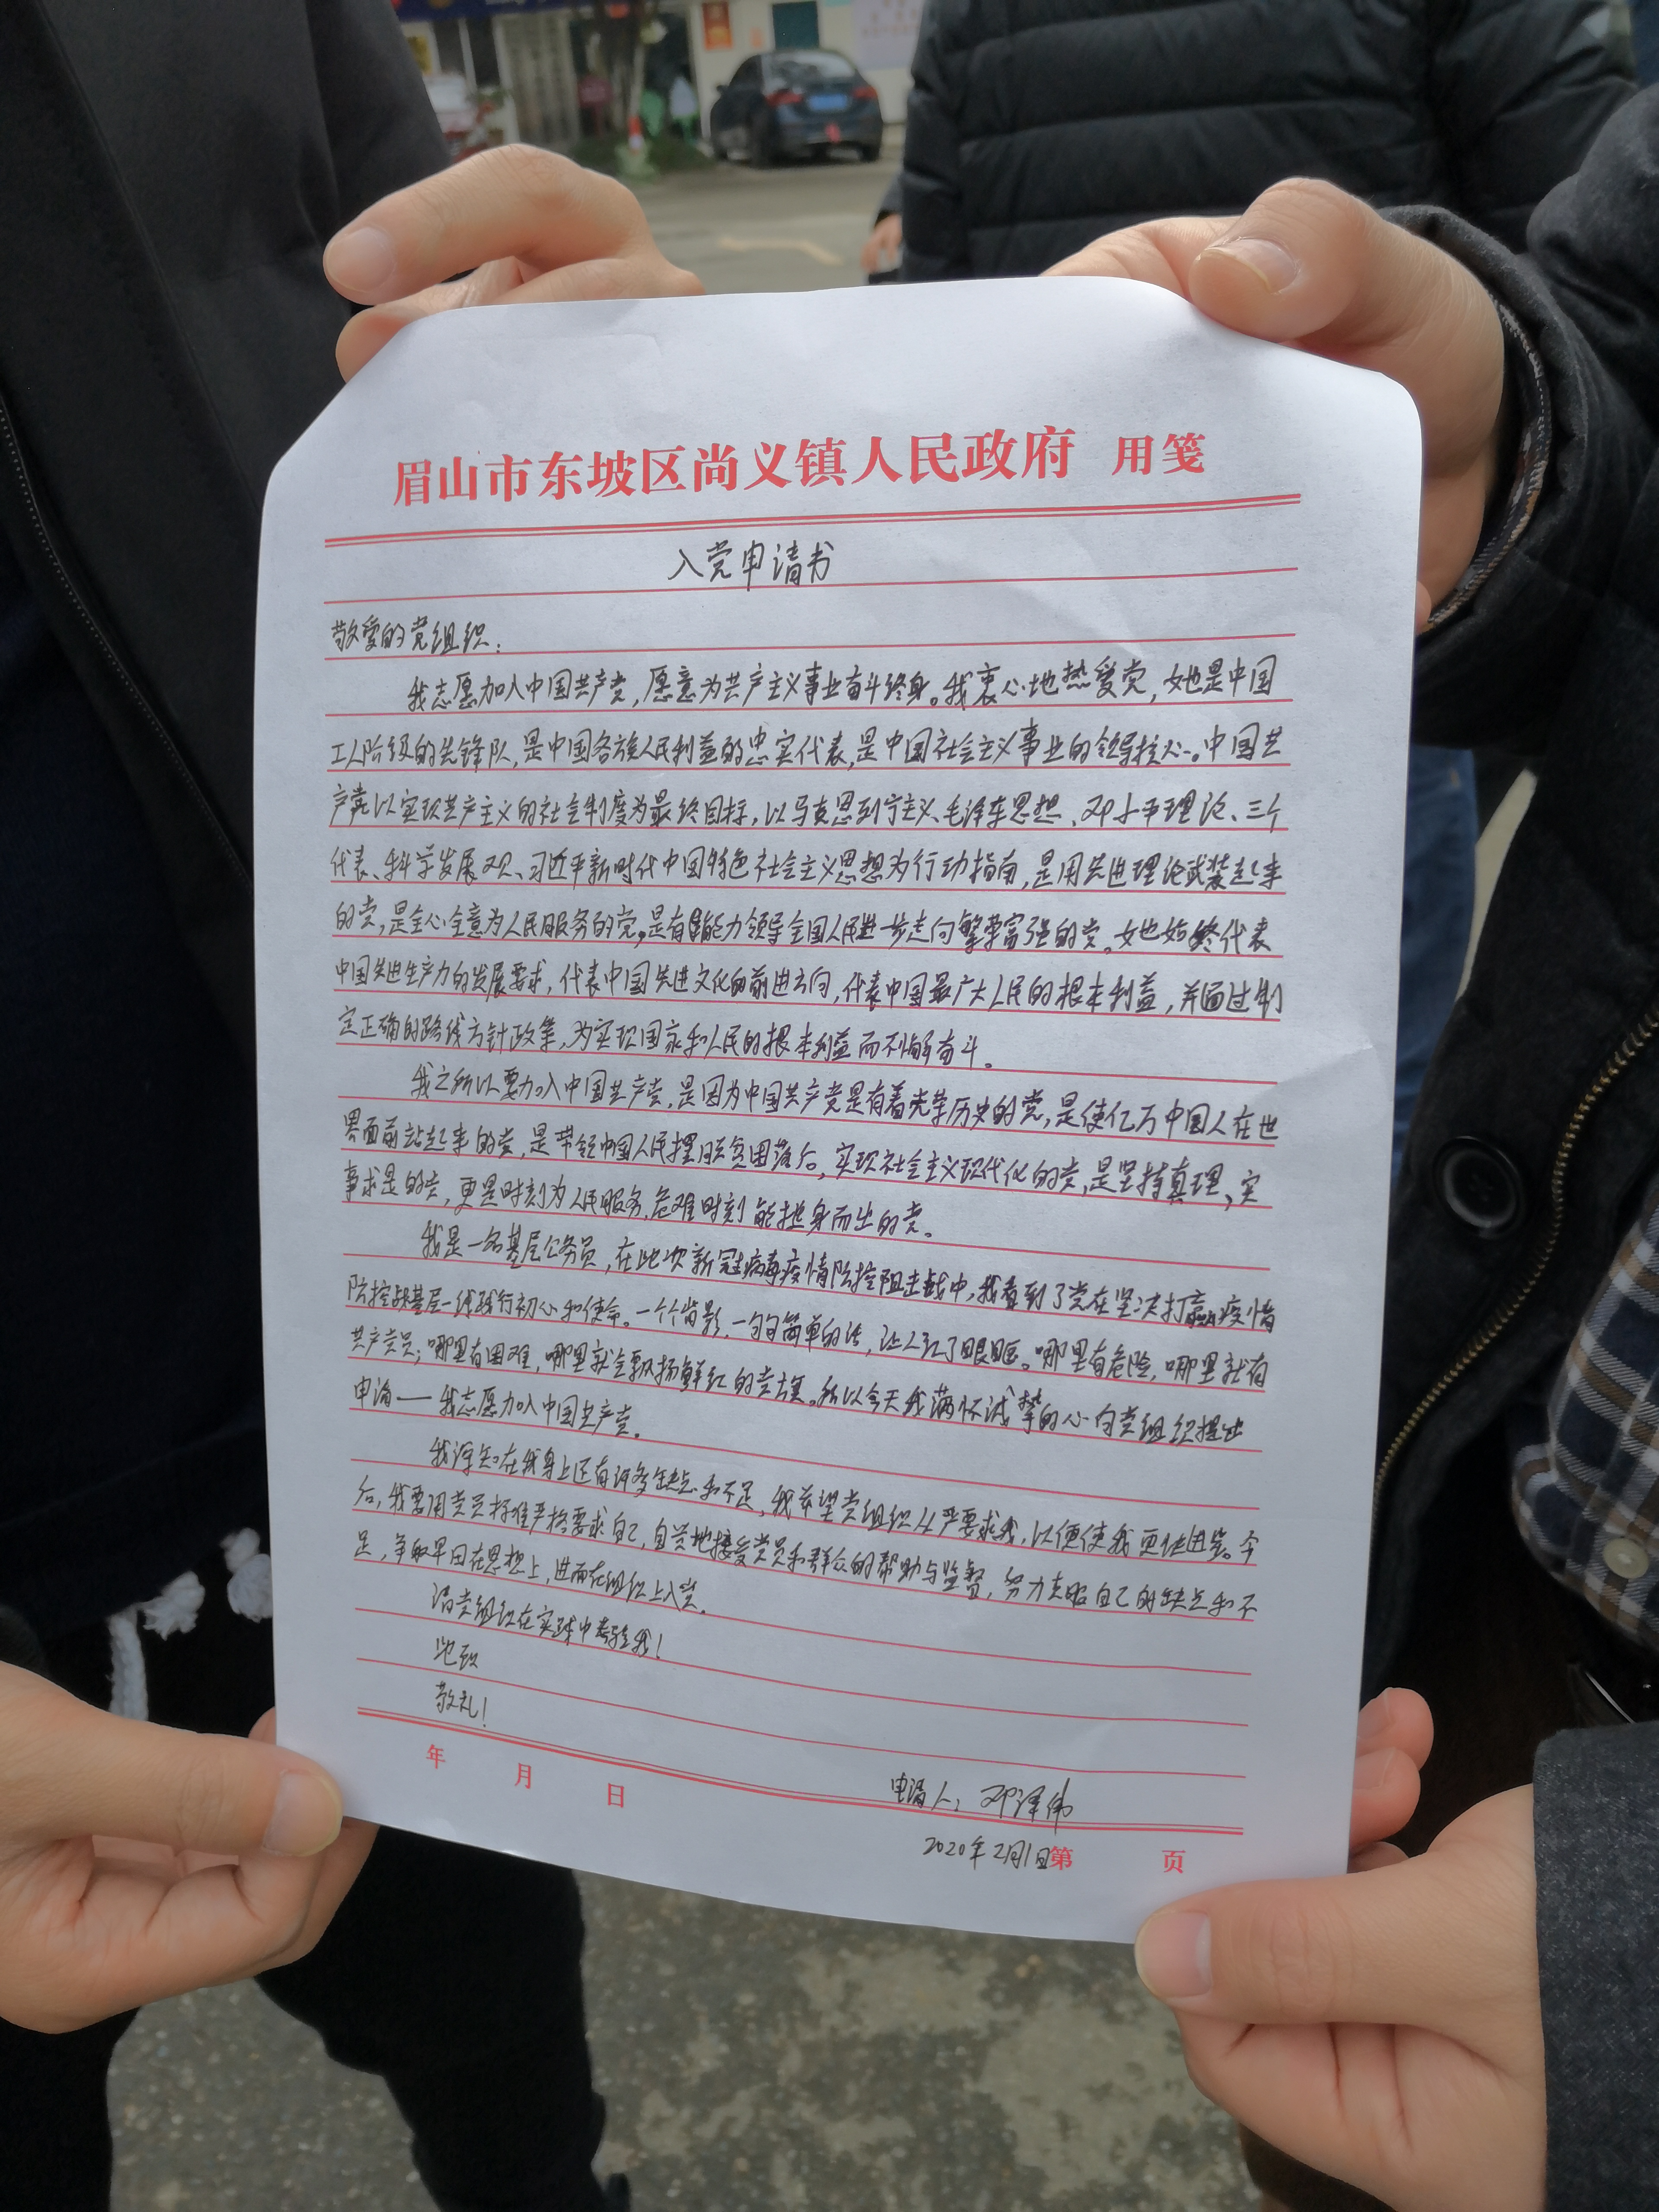 眉山市东坡区尚义镇人民政府 用笺
入党申请书
敬爱的党组织:
我志愿加入中国共产党,愿意为共产主义事业奋斗终身。我衷心地热爱党,她是中国
工人阶级的先锋队,是中国各族人民利益的忠实代表,是中国社会主义事业的领导核心。中国共
产党以实现共产主义的社会制度为最终目标,以马克思列宁主义、毛泽东思想、邓小平理论、三个
代表、科学发展观、习近平新时代中国特色社会主义思想为行动指南,是用先进理论武装起来
的党,是全心全意为人民服务的党,是有能力领导全国人民进一步走向繁荣富强的党。她始终代表
中国先进生产力的发展要求,代表中国先进文化的前进方向,代表中国最广大人民的根本利益,并通过制
定正确的路线方针政策,为实现国家和人民的根本利益而不懈奋斗。
我之所以要加入中国共产党,是因为中国共产党是有着光荣历史的党,是使亿万中国人在世
界面前站起来的党,是带领中国人民摆脱贫困落后,实现社会主义现代化的党,是坚持真理、实
事求是的党,更是时刻为人民服务,危难时刻能挺身而出的党。
我是一名基层公务员,在此次新冠病毒疫情防控阻击战中,我看到了党在坚决打赢疫情
防控战基层一线践行初心和使命。一个个背影,一句句简单的话,让人红了眼眶。哪里有危险,哪里就有
共产党员;哪里有困难,哪里就会飘扬鲜红的党旗。所以今天我满怀诚挚的心向党组织提出
申请——我志愿加入中国共产党。
我深知在我身上还有许多缺点和不足,我希望党组织从严要求我,以便使我更快进步。今
后,我要用党员标准严格要求自己,自觉地接受党员和群众的帮助与监督,努力克服自己的缺点和不
足,争取早日在思想上,进而在组织上入党。
请党组织在实践中考验我!
此致
敬礼!
年 月 日
申请人:邓泽伟
2020年2月1日
第 页